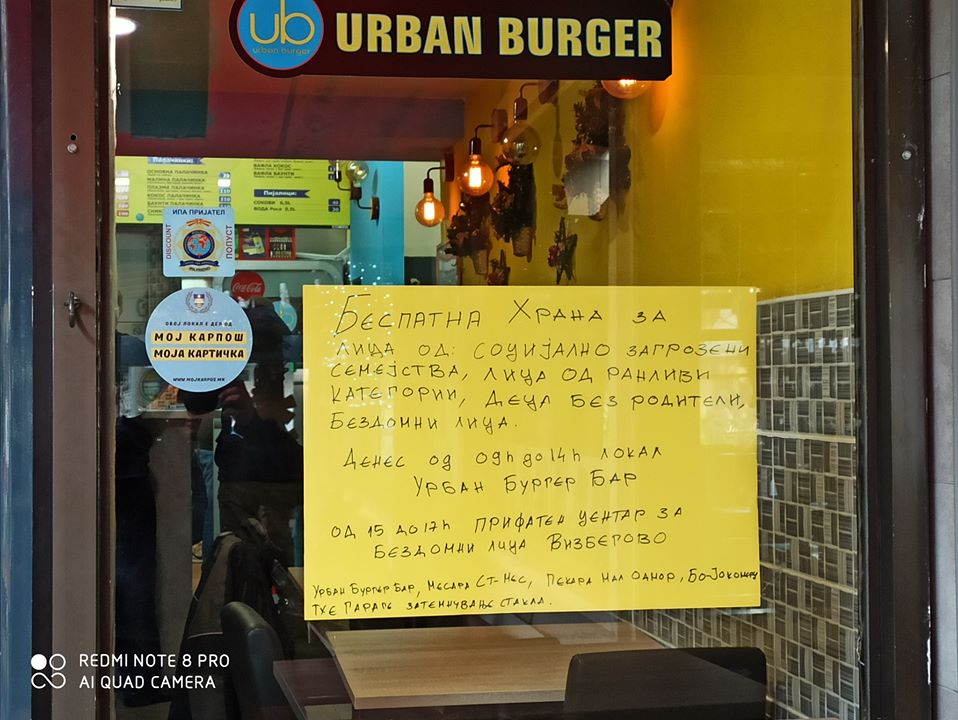 ub
urban burger
URBAN BURGER
Палачинки:
ОСНОВНА ПАЛАЧИНКА
МАЛИНА ПАЛАЧИНКА
ПЛАЗМА ПАЛАЧИНКА
КОКОС ПАЛАЧИНКА
БАУНТИ ПАЛАЧИНКА
ВАФЛА КОКОС
ВАФЛА БАУНТИ
Пијалоци:
СОКОВИ 0,5L
ВОДА Роса 0,5L
ИПА ПРИЈАТЕЛ
DISCOUNT
ПОПУСТ
Coca-Cola
ОВОЈ ЛОКАЛ Е ДЕЛ ОД
МОЈ КАРПОШ
МОЈА КАРТИЧКА
WWW.MOJKARPOS.MK
БЕСПАТНА ХРАНА ЗА
ЛИЦА ОД: СОЦИЈАЛНО ЗАГРОЗЕНИ
СЕМЕЈСТВА, ЛИЦА ОД РАНЛИВИ
КАТЕГОРИИ, ДЕЦА БЕЗ РОДИТЕЛИ,
БЕЗДОМНИ ЛИЦА.
ДЕНЕС ОД 09h до 14h ЛОКАЛ
УРБАН БУРГЕР БАР
ОД 15 ДО 17h ПРИФАТЕН ЦЕНТАР ЗА
БЕЗДОМНИ ЛИЦА ВИЗБЕГОВО
УРБАН БУРГЕР БАР, МЕСАРА СТ-МЕС, ПЕКАРА МАЛ ОДМОР, БО-ЈОКОМЕРЦ
ТХЕ ГАРАГЕ ЗАТЕМНУВАЊЕ СТАКЛА.
REDMI NOTE 8 PRO
AI QUAD CAMERA